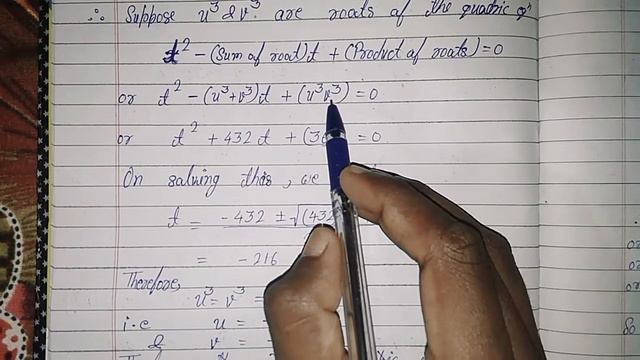 ∴ Suppose u³ & v³ are roots of the quadric
t² - (Sum of root)t + (Product of roots) = 0
or t² - (u³+v³)t + (u³v³) = 0
or t² + 432t + (3 = 0
On solving this, we
t = -432 ± √(432
= -216
Therefore,
u³ = v³ =
i.e u =
& v =